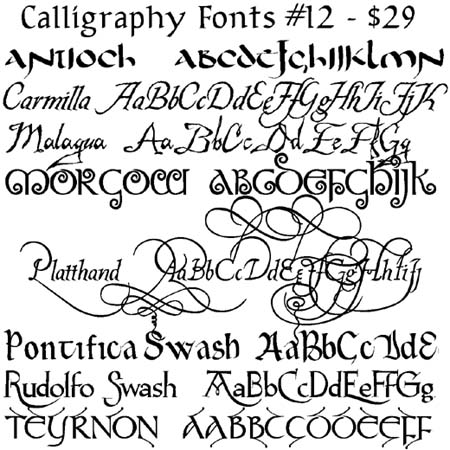 Calligraphy Fonts #12 - $29
ANTIOCH ABCDEFGHIJKLMN
Carmilla AaBbCcDdEeFfGgHhIiJjK
Malagua AaBbCcDdEeFfGg
MORGOW ABCDEFGHIJK
Platthand AaBbCcDdEeFfGgHhIiJj
Pontifica Swash AaBbCcDdE
Rudolfo Swash AaBbCcDdEeFfGg
TEYRNON AABBCCDDEEFF